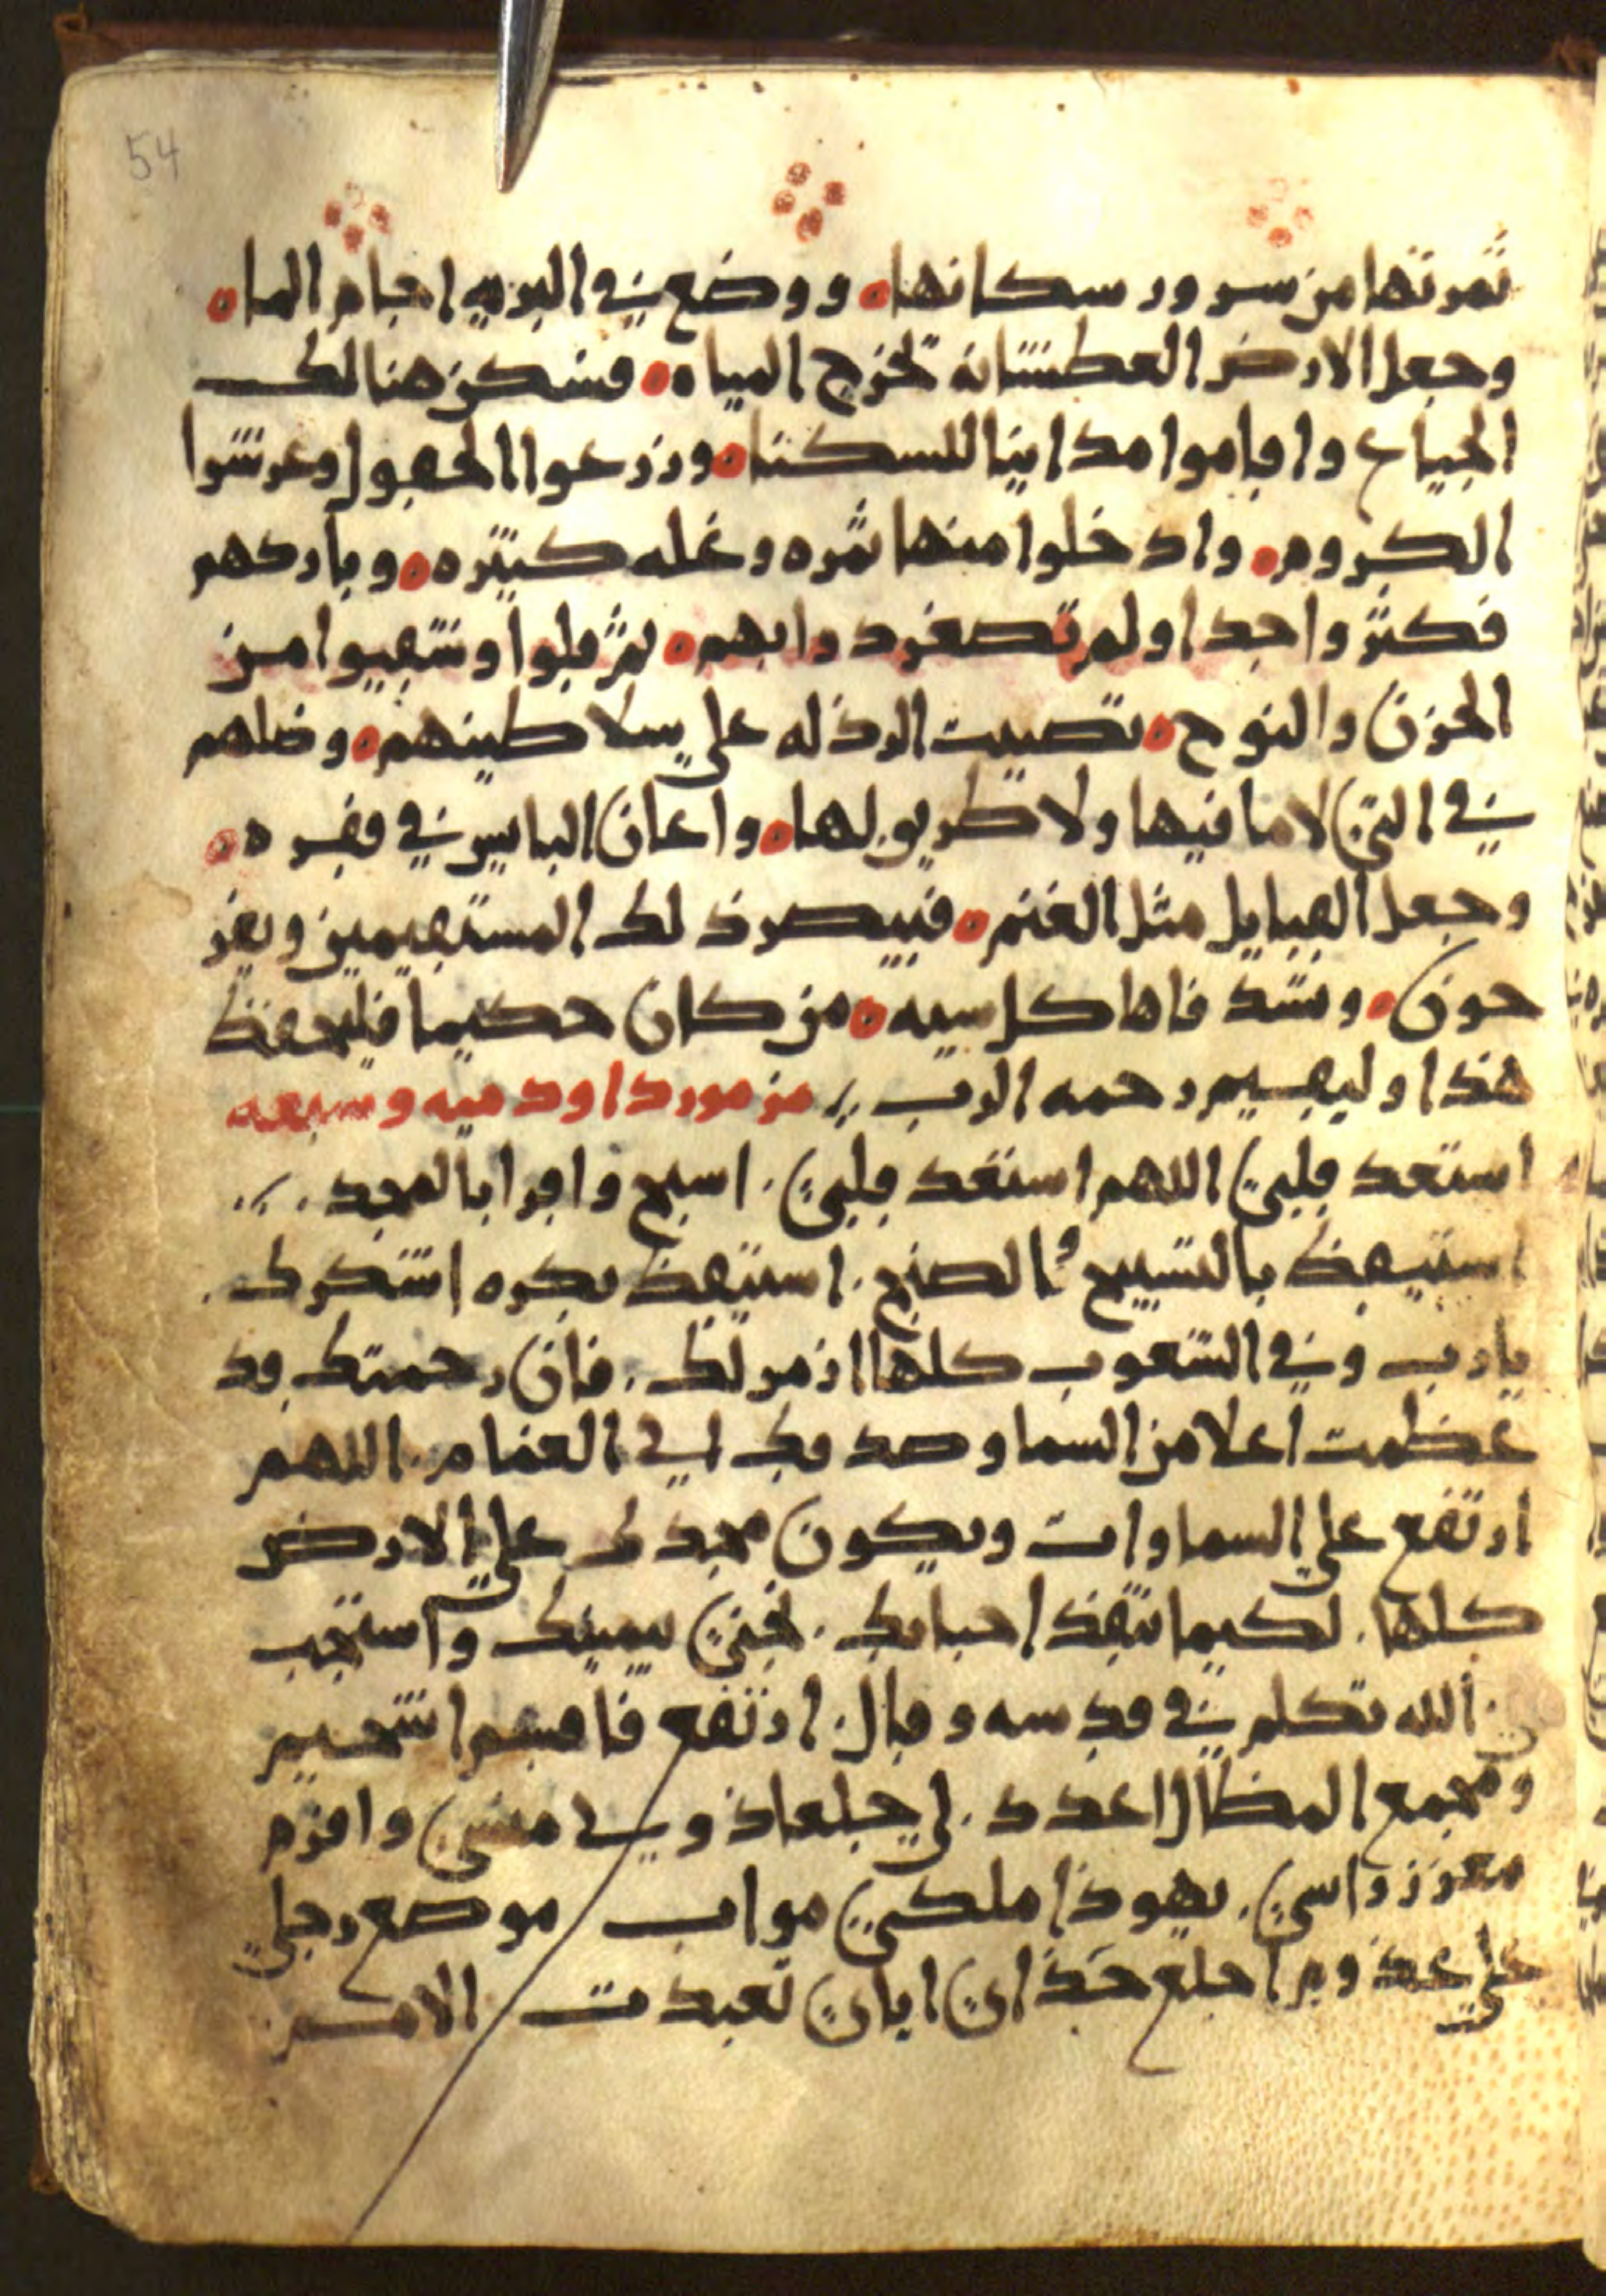 54
ثمرتها من سرور سكانها ۰ ووضع في البريه اجام الما ۰
وجعل الارض العطشانه تخرج المياه ۰ فسكن هنالك
الجياع واقاموا مداينا للسكنا ۰ وزرعوا الحقول وغرسوا
الكروم ۰ وادخلوا منها ثمره وغله كثيره ۰ وباركهم
فكثروا جدا ولم تصغر دوابهم ۰ ثم قلوا وشقيوا من
الحزن والنوح ۰ تصببت الرذله علي سلاطينهم ۰ وضلهم
في التي لا ما فيها ولا طريق لها ۰ واعان البايس في فقره ۰
وجعل القبايل مثل الغنم ۰ فيبصر ذلك المستقيمين ويفر
حون ۰ وتسد فاها كل سيه ۰ من كان حكيما فليحفظ
هذا وليفهم رحمه الرب // مزمور داود ميه وسبعه
استعد قلبي اللهم استعد قلبي . اسبح واقرا بالمجد . //
استيقظ بالتسبيح والصنج . استيقظ بكره اشكرك .
يا رب وفي الشعوب كلها ازمر لك . فان رحمتك قد
عظمت اعلا من السما وصدقك الي الغمام . اللهم
ارتفع علي السماوات ويكون مجدك علي الارض
كلها . لكيما تنقذ احبابك . نجني بيمينك واستجب
لي . الله تكلم في قدسه وقال . ارتفع فاقسم اشحيم
ومجمع المظال اعدد . لي جلعاذ ولي منسي وافرم
معزز راسي . يهوذا ملكي مواب موضع رجلي
علي عذوم اخلع حذاي اياي تعبدت الامم